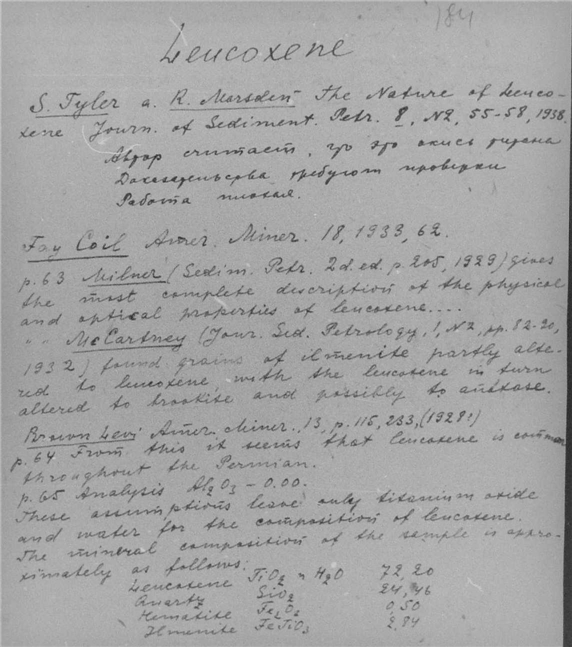 184
Leucoxene
S. Tyler a. R. Marsden The Nature of Leuco-
xene Journ. of Sediment. Petr. 8, N2, 55-58, 1938.
Автор считает, что это окись титана
Доказательства требуют проверки
Работа плохая.
Fay Coil Amer. Miner. 18, 1933, 62.
p. 63 Milner (Sedim. Petr. 2d. ed. p 205, 1929) gives
the most complete description of the physical
and optical properties of leucoxene....
" " McCartney (Jour. Sed. Petrology, 1, N2, pp. 82-90,
1932) found grains of ilmenite partly alte-
red to leucoxene, with the leucoxene in turn
altered to brookite and possibly to anatase.
Brown Levi Amer. Miner. 13, p. 115, 233, (1928!)
p. 64 From this it seems that leucoxene is common
throughout the Permian.
p. 65 Analysis Al2O3 - 0.00.
These assumptions leave only titanium oxide
and water for the composition of leucoxene.
The mineral composition of the sample is appro-
ximately as follows:
Leucoxene TiO2 n H2O 72,20
Quartz SiO2 24,46
Hematite Fe2O3 0,50
Ilmenite FeTiO3 2,84